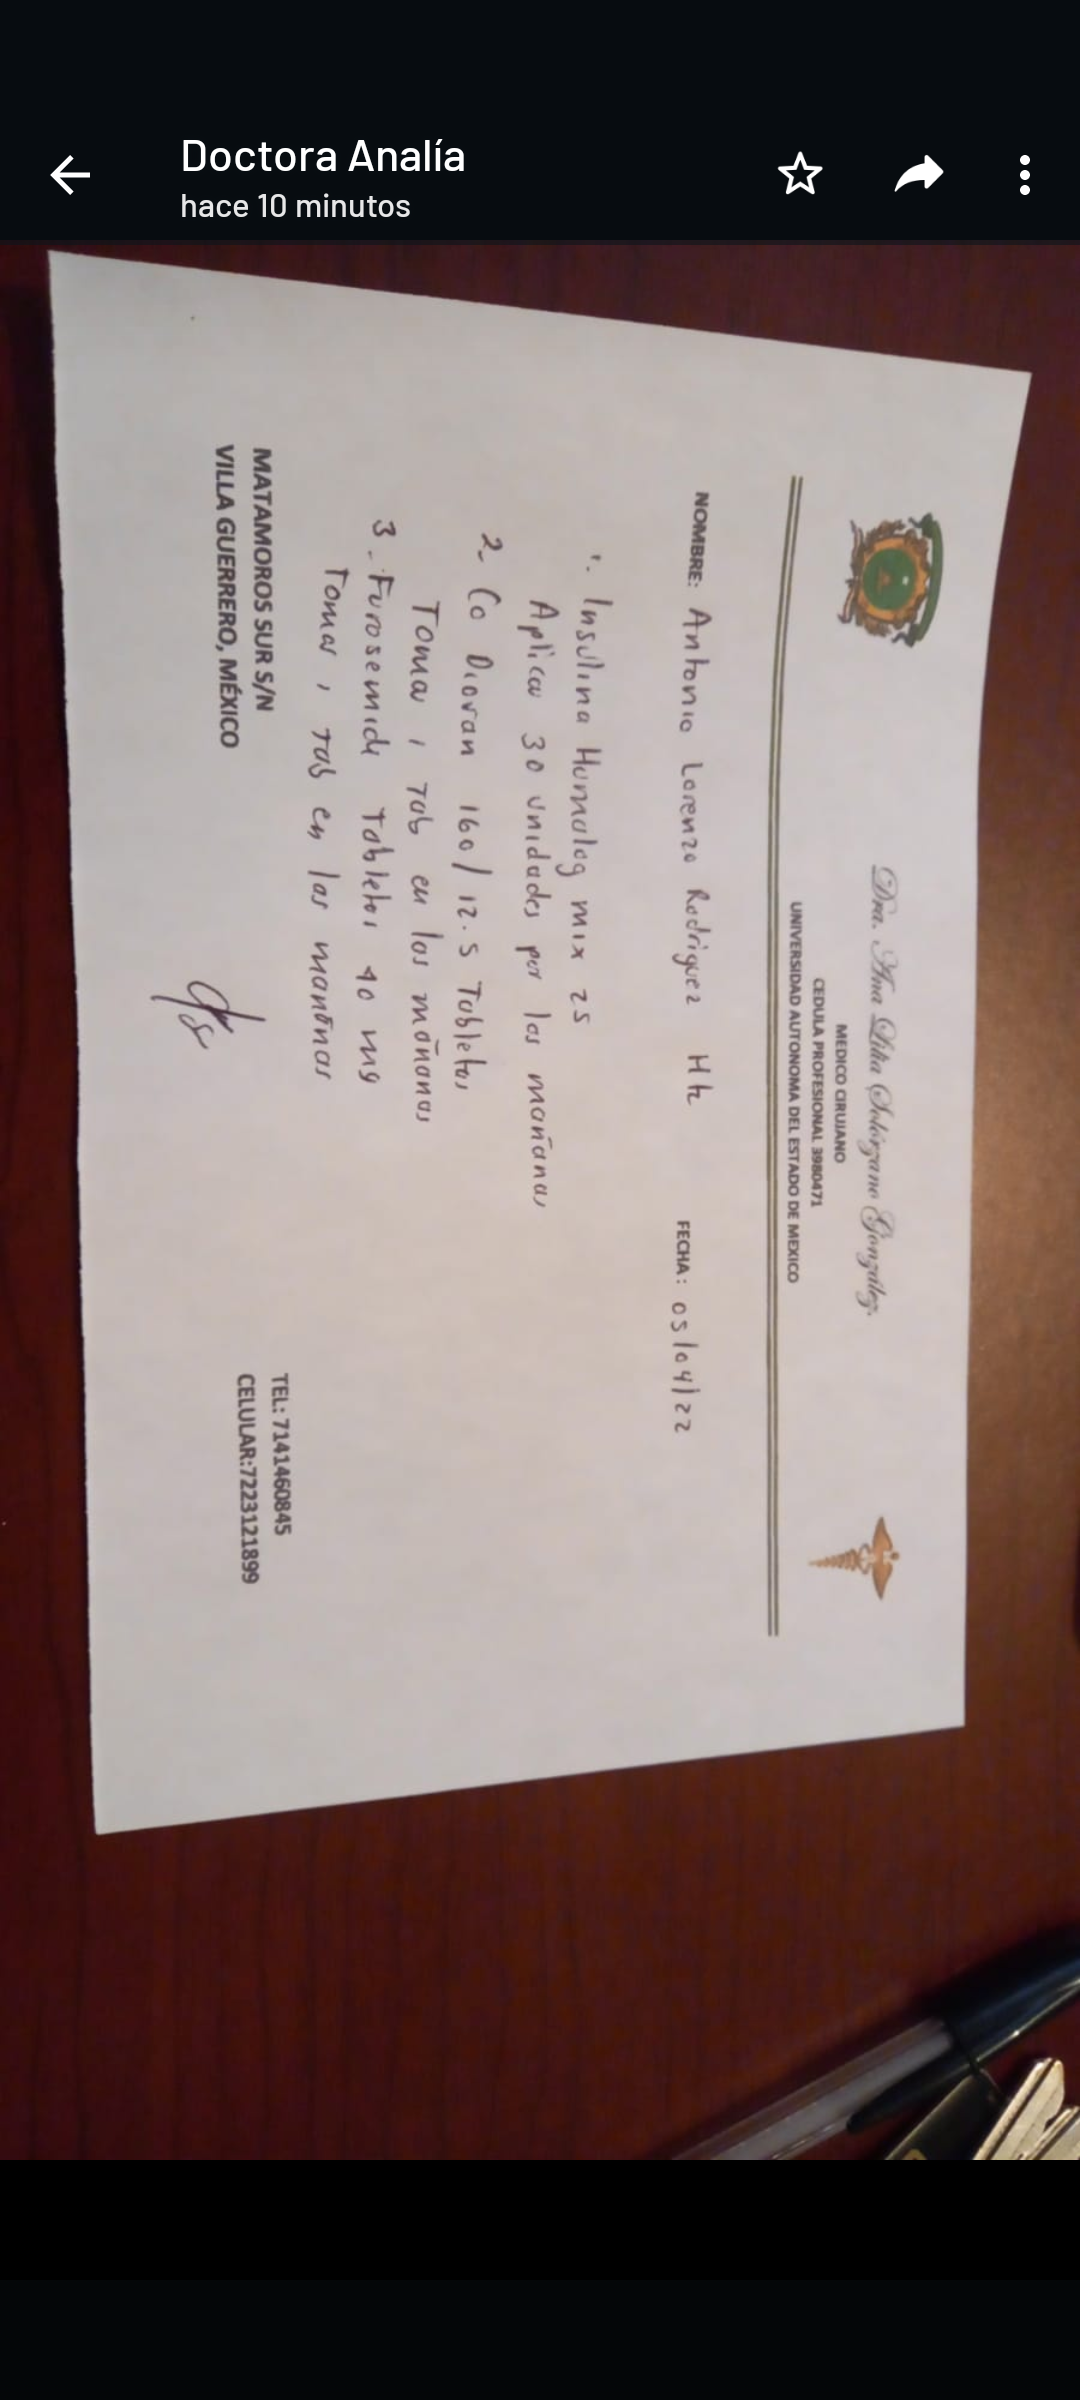 Doctora Analía
hace 10 minutos
Dra. Ana Lilia Solórzano González.
MEDICO CIRUJANO
CEDULA PROFESIONAL 3980471
UNIVERSIDAD AUTONOMA DEL ESTADO DE MEXICO
NOMBRE: Antonio Lorenzo Rodriguez Hdz FECHA: 05/04/22
1. Insulina Humalog mix 25
Aplicar 30 unidades por las mañanas
2- Co Diovan 160/12.5 Tabletas
Tomar 1 Tab en las mañanas
3- Furosemide Tabletas 40 mg
Tomar 1 Tab en las mañanas
MATAMOROS SUR S/N
VILLA GUERRERO, MÉXICO
TEL: 7141460845
CELULAR:7223121899